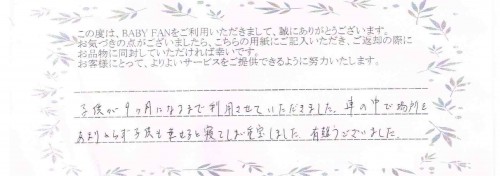 この度は、BABY FANをご利用いただきまして、誠にありがとうございます。
お気づきの点がございましたら、こちらの用紙にご記入いただき、ご返却の際に
お品物に同封していただければ幸いです。
お客様にとって、よりよいサービスをご提供できるように努力いたします。
子供が9ヶ月になるまで利用させていただきました。車の中で場所を
あまりとらず子供も乗せると寝てしまい重宝しました。有難うございました。